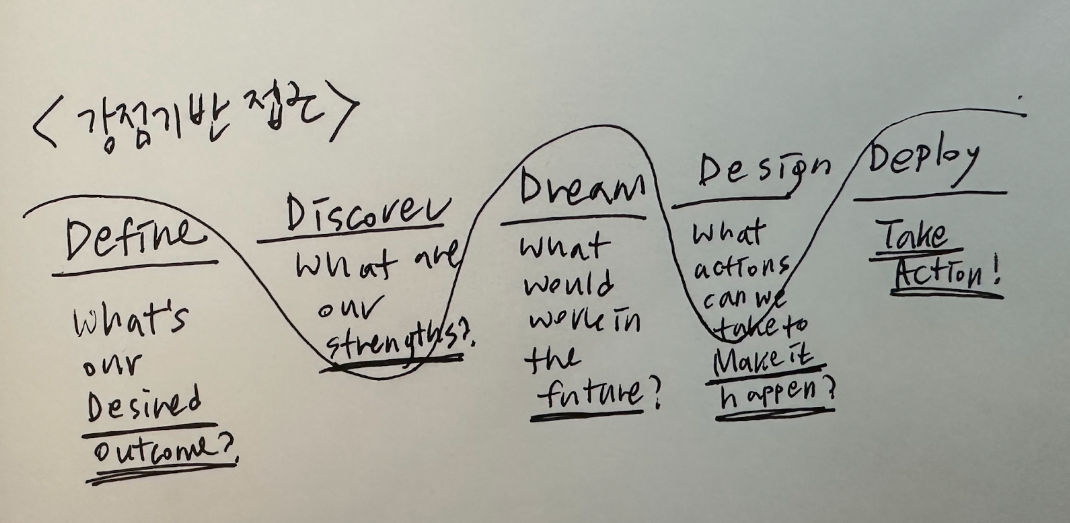 <강점기반 접근>
Define
What's
our
Desired
outcome?
Discover
What are
our
strengths?
Dream
What
would
work in
the
future?
Design
What
actions
can we
take to
Make it
happen?
Deploy
Take
Action!